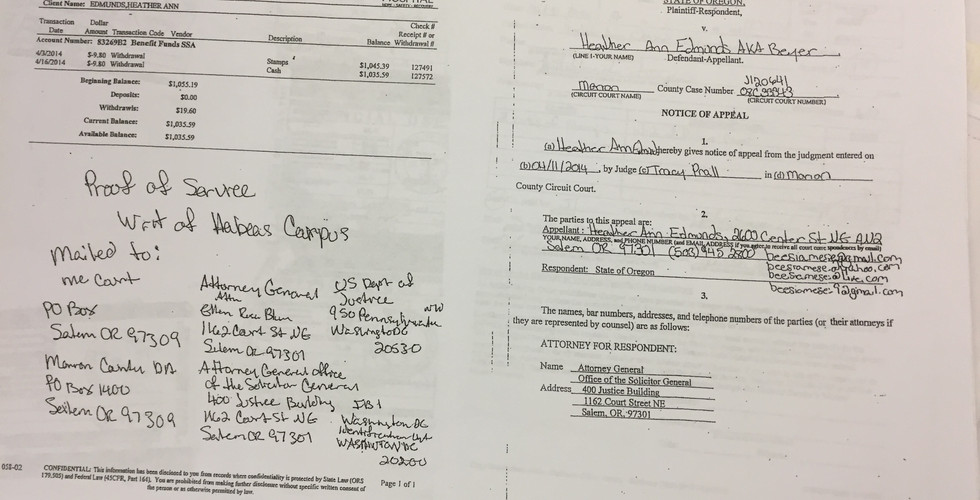 Client Name: EDMUNDS,HEATHER ANN
Transaction Date
Dollar Amount
Transaction Code
Vendor
Description
Balance
Check # Receipt # or Withdrawal #
Account Number: 83269B2 Benefit Funds SSA
4/3/2014 $-9.80 Withdrawal Stamps $1,045.39 127491
4/16/2014 $-9.80 Withdrawal Cash $1,035.59 127572
Beginning Balance: $1,055.19
Deposits: $0.00
Withdrawls: $19.60
Current Balance: $1,035.59
Available Balance: $1,035.59
Proof of Service
Writ of Habeas Campus
Mailed to:
PO Box
Salem OR 97309
Marion County DA
PO Box 1400
Salem OR 97309
Attorney General
Attn
Ellen
1162 Court St NE
Salem OR 97301
Attorney General office
of the Solicitor General
400 Justice Building
1162 Court St NE
Salem OR 97301
US Dept of
Justice
950 Pennsylvania NW
Washington DC
20530
FBI
Washington DC
Identification Unit
WASHINGTON DC
058-02
CONFIDENTIAL: This information has been disclosed to you from records where confidentiality is protected by State Law (ORS
179.505) and Federal Law (45CFR, Part 164). You are prohibited from making further disclosure without specific written consent of
the person or as otherwise permitted by law.
Page 1 of 1
STATE OF OREGON,
Plaintiff-Respondent,
v.
Heather Ann Edmunds AKA Beyer
(LINE 1-YOUR NAME) Defendant-Appellant.
J120641
Marion County Case Number 02C
(CIRCUIT COURT NAME) (CIRCUIT COURT NUMBER)
NOTICE OF APPEAL
1.
(a) Heather Ann hereby gives notice of appeal from the judgment entered on
(b) 04/11/2014, by Judge (c) Tracy Prall in (d) Marion
County Circuit Court.
2.
The parties to this appeal are:
Appellant: Heather Ann Edmonds, 2600 Center St NE
YOUR NAME, ADDRESS, and PHONE NUMBER (and EMAIL ADDRESS if you agree to receive all court correspondence by email)
Salem OR 97301 (503) 945 2800 beesiamese@gmail.com
beesiamese@yahoo.com
Respondent: State of Oregon beesiamese@live.com
beesiamese.9@gmail.com
3.
The names, bar numbers, addresses, and telephone numbers of the parties (or their attorneys if
they are represented by counsel) are as follows:
ATTORNEY FOR RESPONDENT:
Name Attorney General
Office of the Solicitor General
Address 400 Justice Building
1162 Court Street NE
Salem, OR 97301